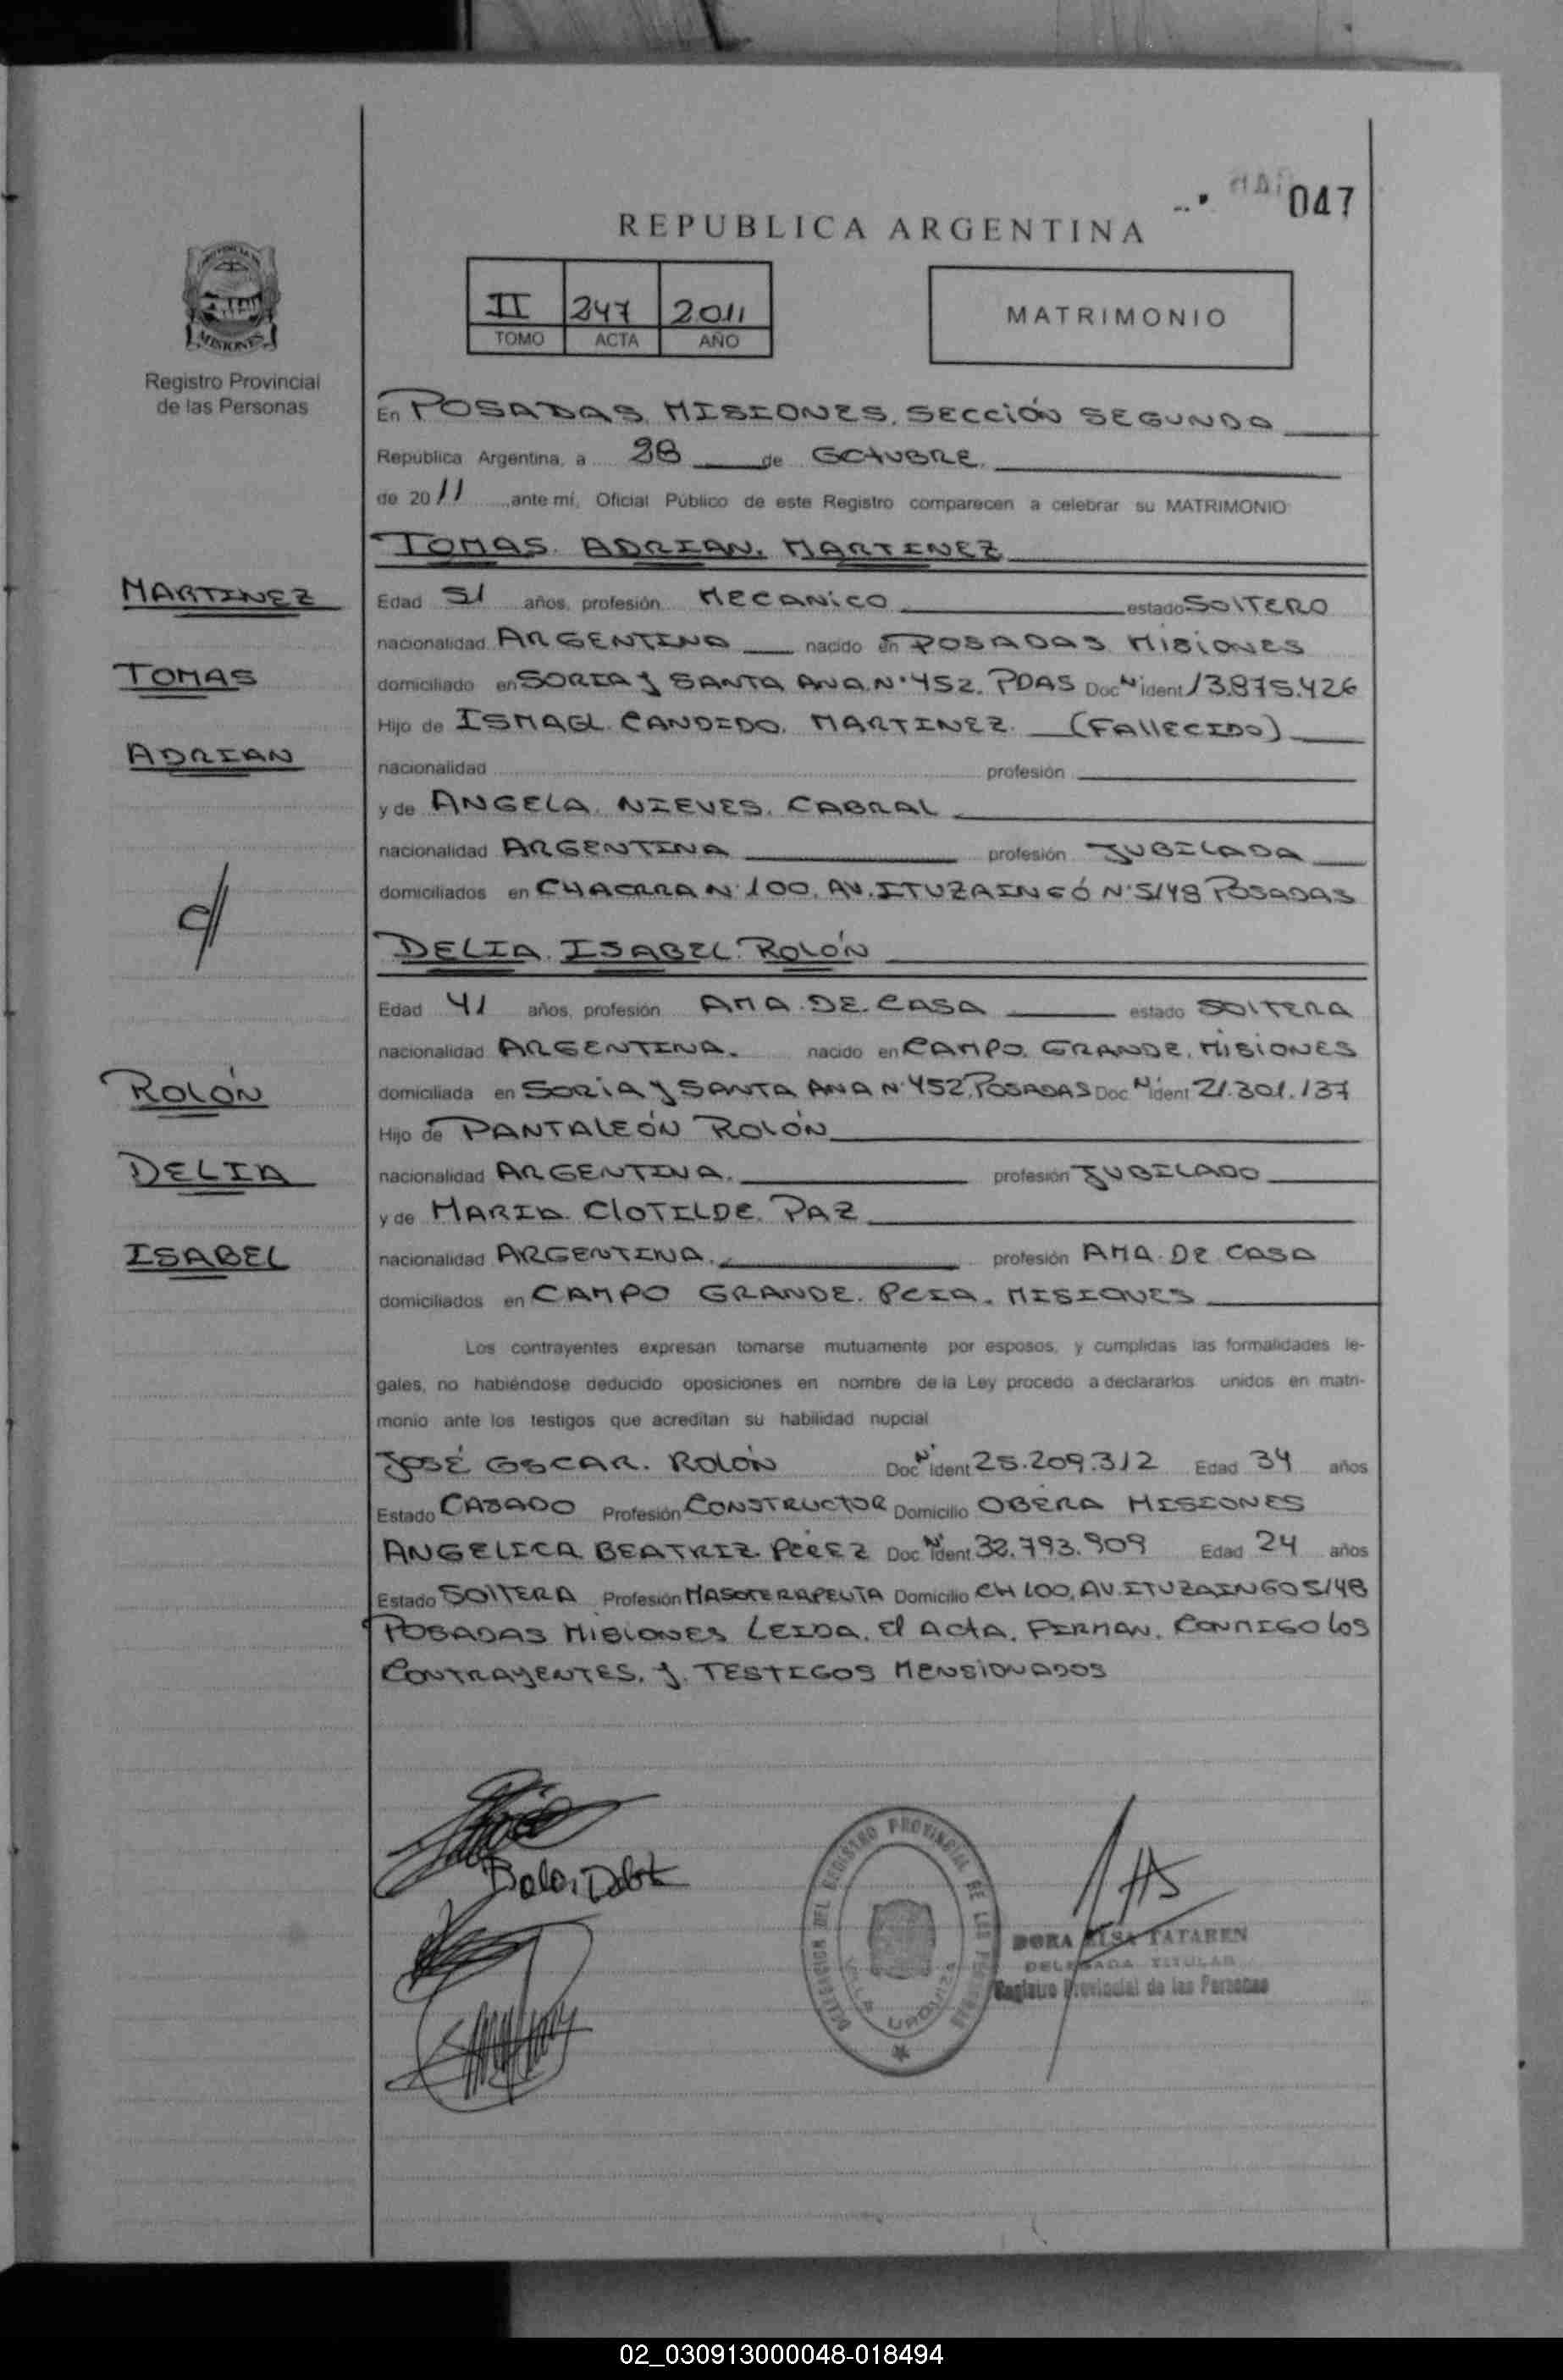 047
REPUBLICA ARGENTINA
II 247 2011
TOMO ACTA AÑO
MATRIMONIO
MISIONES
Registro Provincial
de las Personas
En POSADAS, MISIONES, SECCIÓN SEGUNDA
República Argentina, a 28 de OCTUBRE
de 2011 ante mí, Oficial Público de este Registro comparecen a celebrar su MATRIMONIO
TOMAS. ADRIAN. MARTINEZ
MARTINEZ
Edad 51 años, profesión MECANICO estado SOLTERO
nacionalidad ARGENTINA nacido en POSADAS MISIONES
TOMAS
domiciliado en SORIA Y SANTA ANA. N° 452. PDAS Doc N° ident 13.875.426
Hijo de ISMAEL. CANDIDO. MARTINEZ. (FALLECIDO)
ADRIAN
nacionalidad profesión
y de ANGELA. NIEVES. CABRAL
nacionalidad ARGENTINA profesión JUBILADA
domiciliados en CHACRRA N° 100. AV. ITUZAINGÓ N° 5148 POSADAS
DELIA. ISABEL. ROLÓN
Edad 41 años, profesión AMA. DE. CASA estado SOLTERA
nacionalidad ARGENTINA. nacido en CAMPO. GRANDE. MISIONES
ROLÓN
domiciliada en SORIA Y SANTA ANA N° 452. POSADAS Doc N° ident 21.301.137
Hijo de PANTALEÓN ROLÓN
DELIA
nacionalidad ARGENTINA. profesión JUBILADO
y de MARIA. CLOTILDE. PAZ
ISABEL
nacionalidad ARGENTINA. profesión AMA. DE CASA
domiciliados en CAMPO GRANDE. PCIA. MISIONES
Los contrayentes expresan tomarse mutuamente por esposos, y cumplidas las formalidades le-
gales, no habiéndose deducido oposiciones en nombre de la Ley procedo a declararlos unidos en matri-
monio ante los testigos que acreditan su habilidad nupcial
JOSÉ OSCAR. ROLÓN Doc N° ident 25.209.312 Edad 34 años
Estado CASADO Profesión CONSTRUCTOR Domicilio OBERA MISIONES
ANGELICA BEATRIZ PEREZ Doc N° ident 32.793.909 Edad 24 años
Estado SOLTERA Profesión MASOTERAPEUTA Domicilio CH 100. AV. ITUZAINGO 5148
POSADAS MISIONES LEIDA. El ACTA. FIRMAN. CONMIGO LOS
CONTRAYENTES. Y. TESTIGOS MENSIONADOS
DELEGACION DEL REGISTRO PROVINCIAL DE LAS PERSONAS
VILLA URQUIZA
DORA ELSA TATAREN
DELEGADA TITULAR
Registro Provincial de las Personas
02_030913000048-018494